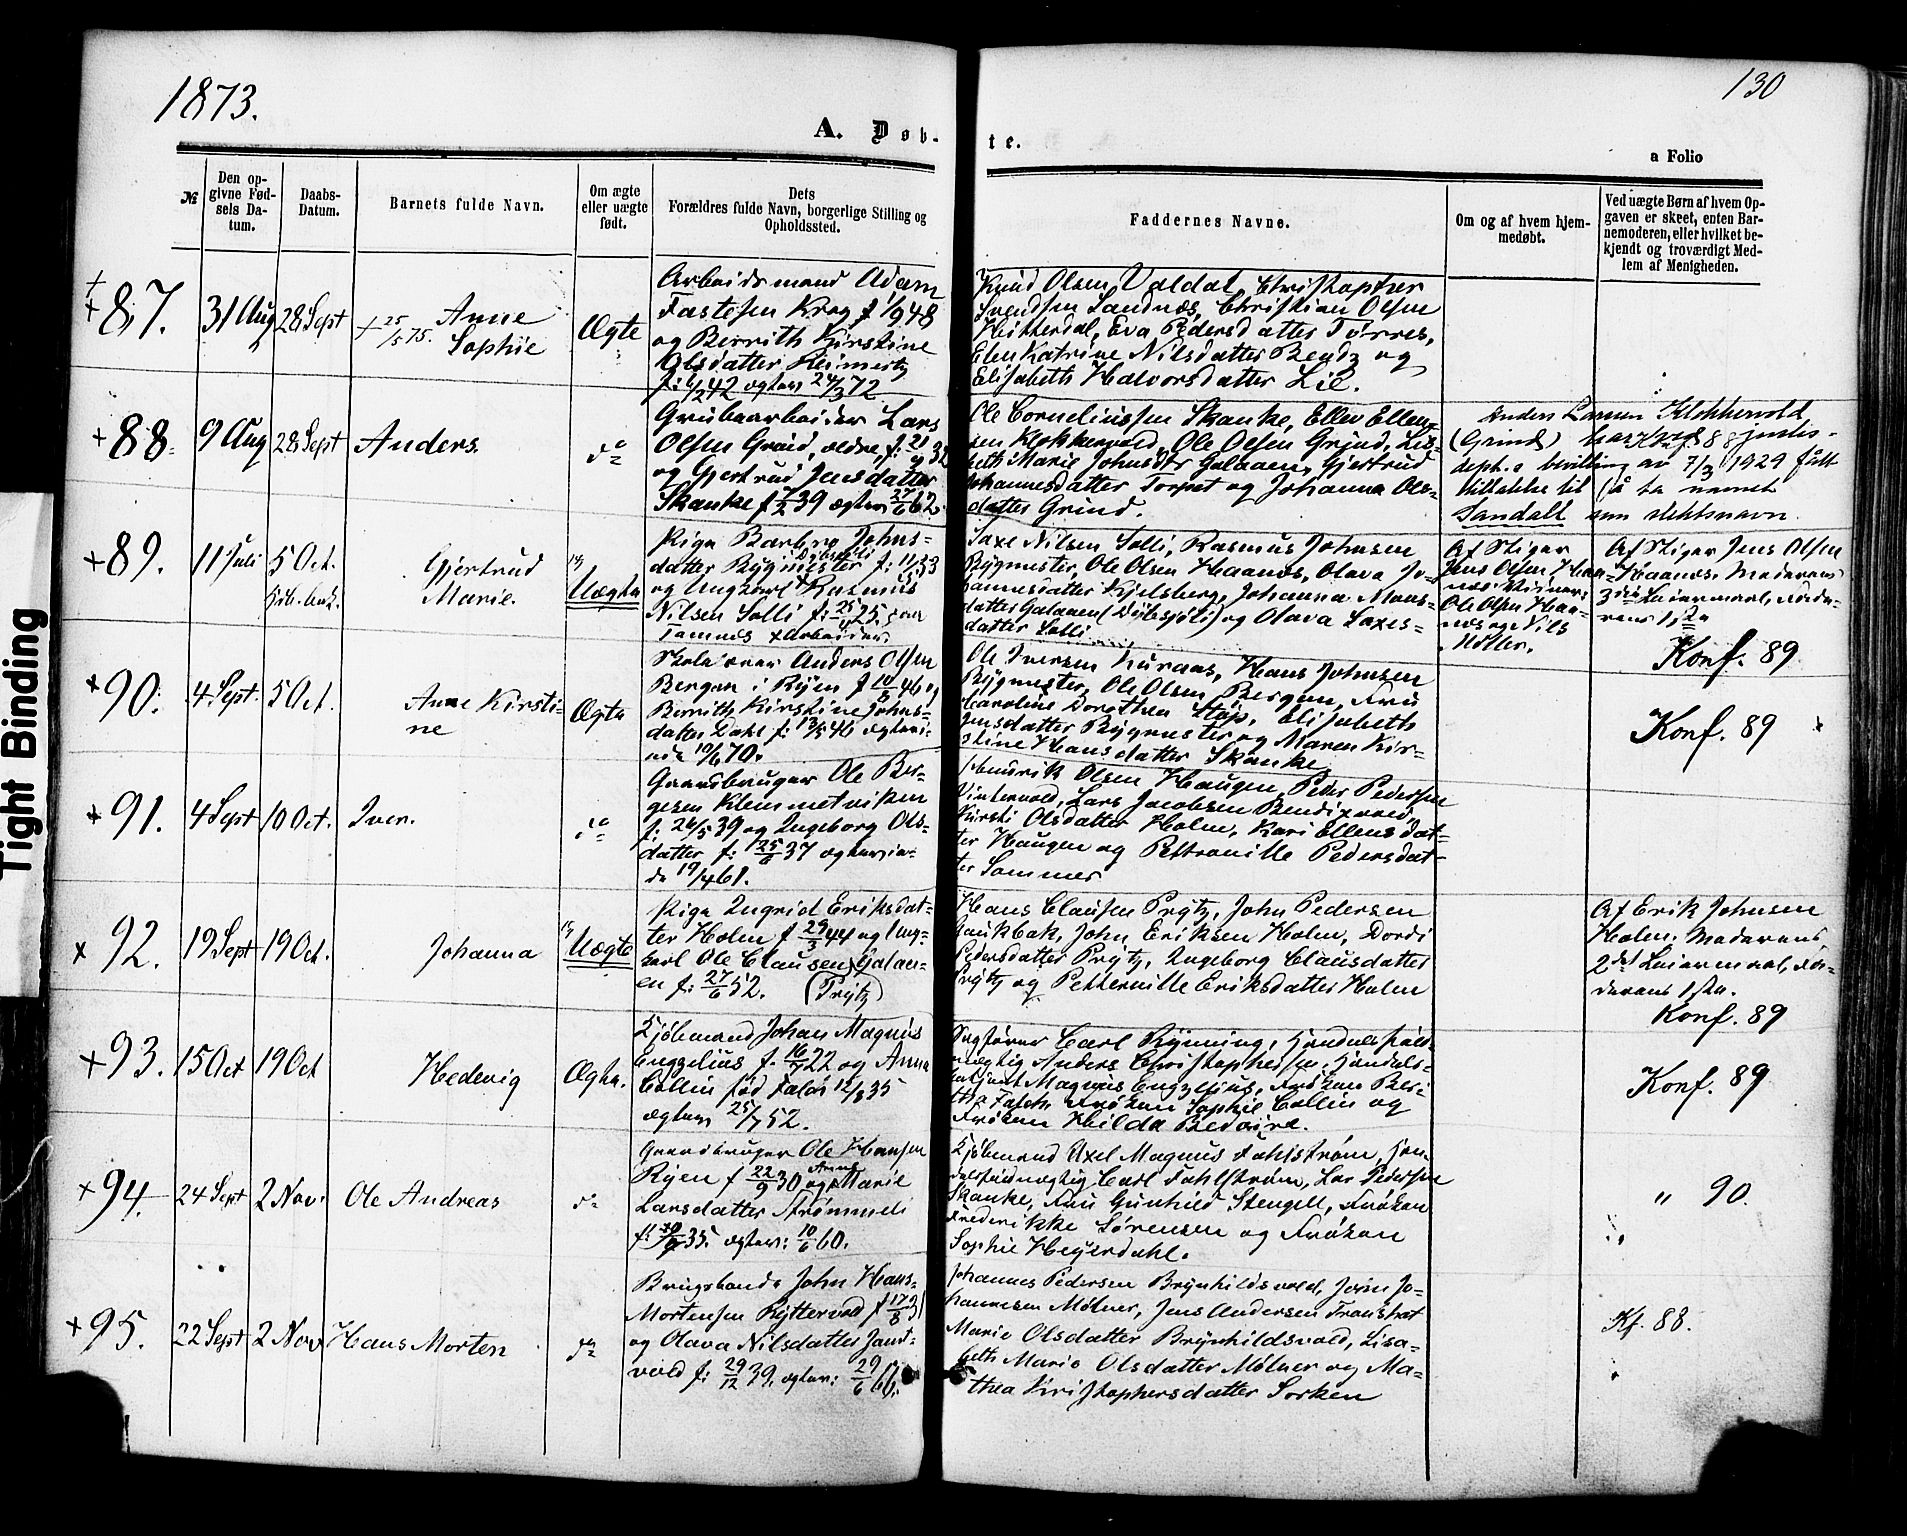 1873.
130
A. Døb-
te.
a Folio
№
Den op-
givne Fød-
sels Da-
tum.
Daabs-
Datum.
Barnets fulde Navn.
Om ægte
eller uægte
født.
Dets
Forældres fulde Navn, borgerlige Stilling og
Opholdssted.
Faddernes Navne.
Om og af hvem hjem-
medøbt.
Ved uægte Børn af hvem Op-
gaven er skeet, enten Bar-
nemoderen, eller hvilket be-
kjendt og troværdigt Med-
lem af Menigheden.
+ 87. 31 Aug 28 Sept
+ 25/5 75. Anne
Sophie
Ægte
Arbeidsmand Adam
Fastesen Krog f 1/9 48
og Berrith Kirstine
Olsdatter Reimertz
f: 6/2 42 ægtev 24/3 72
Knud Olsen Valdal, Christopher
Svendsen Sandnæs, Christian Olsen
Hitterdal, Eva Pedersdatter Tørres,
Elen Katrine Nilsdatter Bendz og
Elisabeth Halvorsdatter Lie.
+ 88. 9 Aug 28 Sept Anders. do
Grubearbeider Lars
Olsen Grind, ældre, f: 21/9 32
og Gjertrud Jensdatter
Skanke f 7/2 39 ægtev 27/6 62.
Ole Corneliussen Skanke, Ellev Ellev-
sen Klokkervold, Ole Olsen Grind, Lis-
beth Marie Johnsdtr Galaaen, Gjertrud
Johannesdatter Torpet og Johanna Ols-
datter Grind.
Anders Larsen Klokkervold
(Grind) har justis-
dept.s bevilling av 7/3 1929 fått
tillatelse til å ta navnet
Sandall som slektsnavn.
+ 89. 11 Juli 5 Oct.
Gjertrud
Marie.
Uægte
Pige Barbro Johns-
datter Bygmester f: 11/ 33
og Ungkarl Rasmus
Nilsen Solli f: 25/4 25,
Tamnæs Arbeider.
Saxe Nilsen Solli, Rasmus Johnsen
Bygmester, Ole Olsen Haanæs, Olava Jo-
hannesdatter Kjelsberg, Johanna Mons-
datter Galaaen (Dybesjöli) og Olava Saxes-
datter Solli
Af Stiger
Jens Olsen Haa-
næs.
Ole Olsen Haa-
næs og Nils
Møller.
Af Stiger Jens Olsen
Haanæs. Moderens
3die Leiermaal, Fade-
rens 1ste
Konf. 89
+ 90. 4 Sept. 5 Oct.
Anne Kirsti-
ne
Ægte
Skolelærer Anders Olsen
Bergan i Ryen f 10/8 46 og
Berrith Kirstine Johns-
datter Dahl f: 13/5 46 ægtevi-
ede 10/6 70.
Ole Iversen Kuraas, Hans Johnsen
Bygmester, Ole Olsen Bergan, Fru
Caroline Dorothea Støp, Elisabeth
Jensdatter Bygmester og Maren Kir-
stine Hansdatter Skanke
Konf. 89
+ 91. 4 Sept 10 Oct. Iver. do
Gaardbruger Ole Bør-
gesen Klemmetviken
f: 26/5 39 og Ingeborg Ols-
datter f: 25/6 37 ægtevie-
de 19/4 61.
Hendrik Olsen Haugen, Peder Pedersen
Vintervold, Lars Jacobsen Bendixvold,
Kirsti Olsdatter Holm, Kari Ellensdat-
ter Haugen og Pettronille Pedersdat-
ter Sommer
+ 92. 19 Sept 19 Oct. Johanna
Uægte
Pige Ingrid Eriksdat-
ter Holm f 29/3 44 og Ung-
karl Ole Clausen Galaa-
en f: 27/6 52. (Prytz)
Hans Clausen Prytz, John Pedersen
Gaukbak, John Eriksen Holm, Dordi
Pedersdatter Prytz, Ingeborg Clausdatter
Prytz og Petternille Eriksdatter Holm
Af Erik Johnsen
Holm. Moderens
2det Leiermaal, Fa-
derens 1ste.
Konf. 89
+ 93. 15 Oct 19 Oct Hedevig Ægte.
Kjöbmand Johan Magnus
Engzelius f. 16/7 22 og Anna
Collin fød Falos 12/8 35
ægtev 25/7 52.
Sagfører Carl Rynning, Handelsfuld-
mægtig Anders Christophersen, Handels-
betjent Magnus Engzelius, Frøken Beri-
tha Fasch, Frøken Sophie Collin og
Frøken Hilda Bedoire.
Konf. 89
+ 94. 24 Sept 2 Nov. Ole Andreas do
Gaardbruger Ole Hansen
Ryen f 22/9 30 og Anne Marie
Larsdatter Strømmeli
35. ægtev: 10/6 60.
Kjöbmand Axel Magnus Fahlstrøm, Han-
delsfuldmægtig Carl Fahlstrøm, Lars Pedersen
Skanke, Fru Gunhild Stengell, Frøken
Frederikke Sørensen og Frøken
Sophie Heyerdahl.
" 90.
+ 95. 22 Sept 2 Nov Hans Morten do
Brugsbonde John Hans-
Mortensen Ryttervold f 17/8 31
og Olava Nilsdatter Sand-
vold f: 29/12 39, ægtev: 29/6 66.
Johannes Pedersen Brynhildsvold, Jørn Jo-
hannesen Mølner, Jens Andersen Tronshat
Marie Olsdatter Brynhildsvold, Lisa-
beth Marie Olsdatter Mølner og Ma-
thea Kristophersdatter Sorken
Kf. 88.
Tight Binding